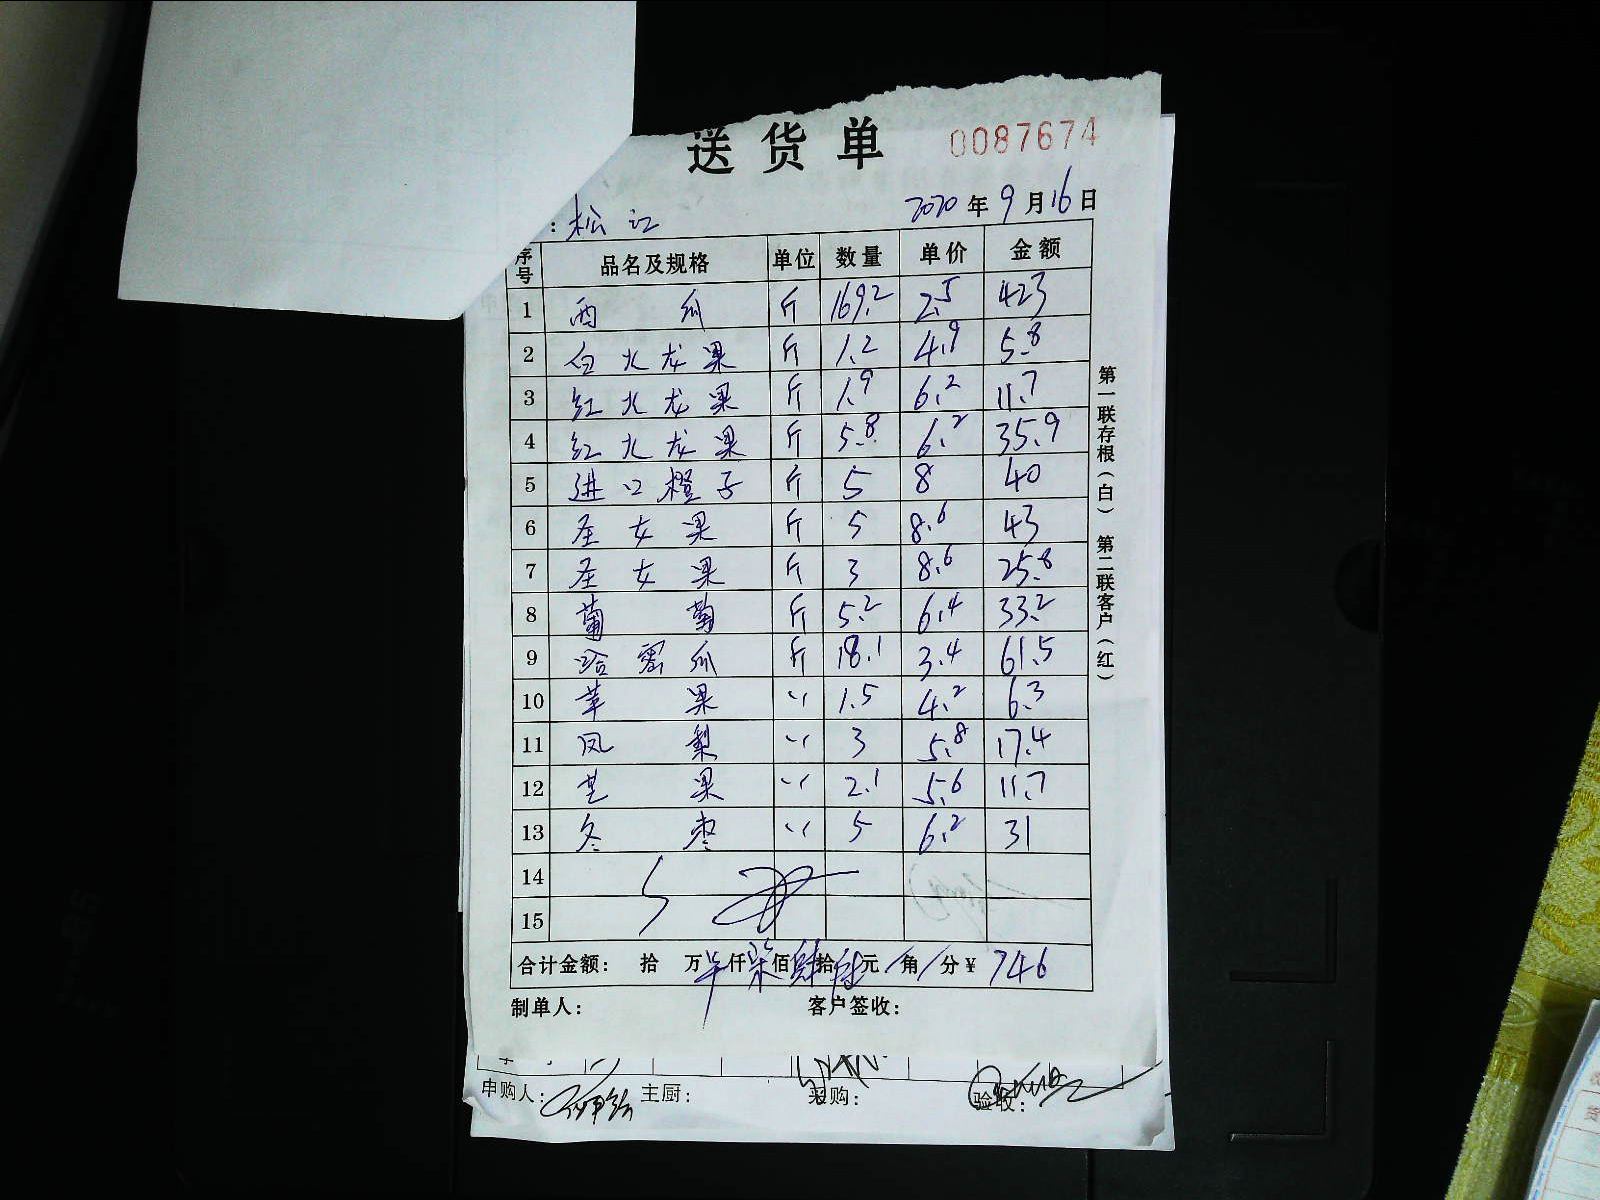 送货单 0087674
：松江 2020年9月16日
序号 品名及规格 单位 数量 单价 金额
1 西瓜 斤 169.2 2.5 423
2 白火龙果 斤 1.2 4.9 5.8
3 红火龙果 斤 1.9 6.2 11.7
4 红火龙果 斤 5.8 6.2 35.9
5 进口橙子 斤 5 8 40
6 圣女果 斤 5 8.6 43
7 圣女果 斤 3 8.6 25.8
8 葡萄 斤 5.2 6.4 33.2
9 哈密瓜 斤 18.1 3.4 61.5
10 苹果 〃 1.5 4.2 6.3
11 凤梨 〃 3 5.8 17.4
12 芒果 〃 2.1 5.6 11.7
13 冬枣 〃 5 6.2 31
14
15
合计金额： 拾 万 仟 柒 佰 肆 拾 陆 元 / 角 / 分 ¥ 746
制单人： 客户签收：
第一联存根（白） 第二联客户（红）
申购人： 主厨： 采购： 验收：